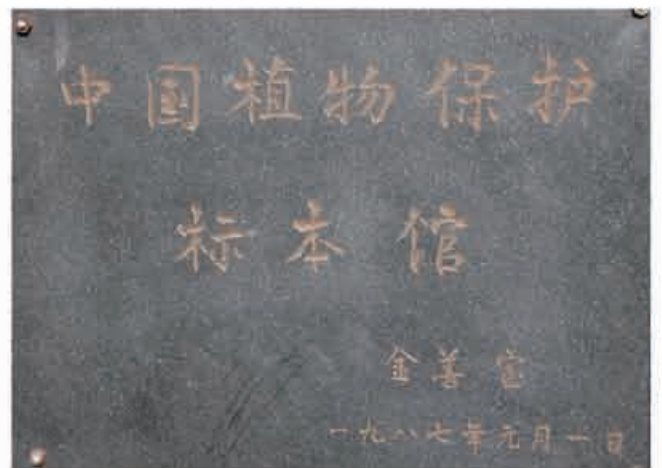 中国植物保护
标本馆
金善宝
一九八七年元月一日